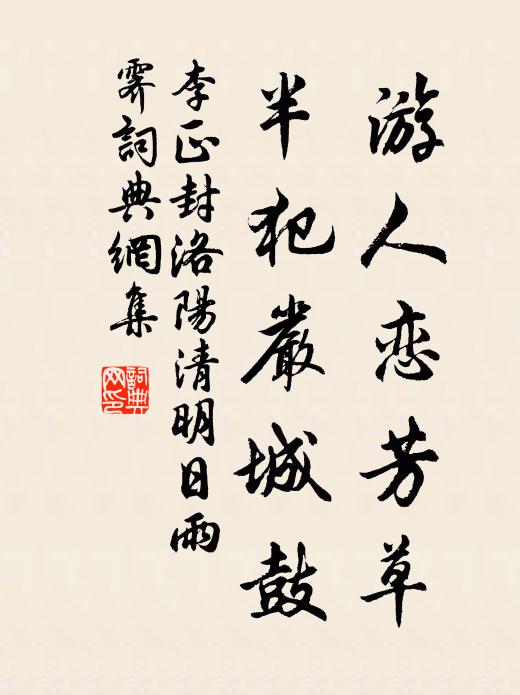 游人恋芳草
半犯嚴城鼓
李正封洛陽清明日雨
霽詞典網集
詞典
网印